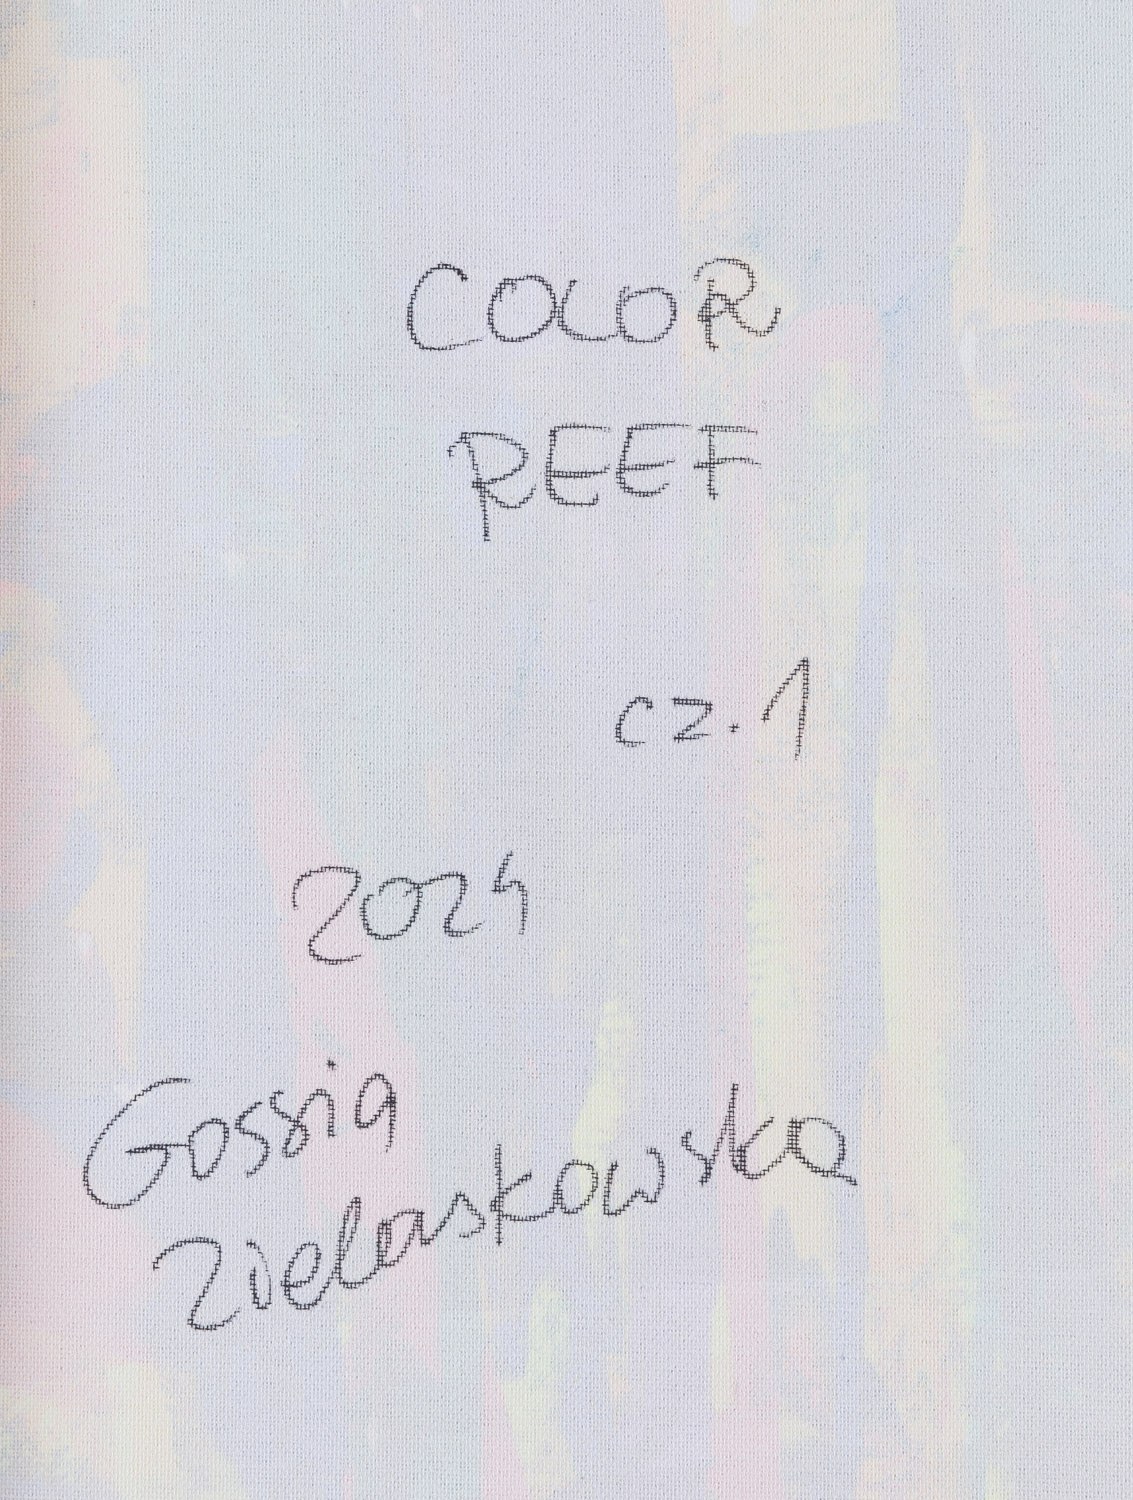 COLOR
REEF
cz.1
2024
Gossia
Zielaskowska